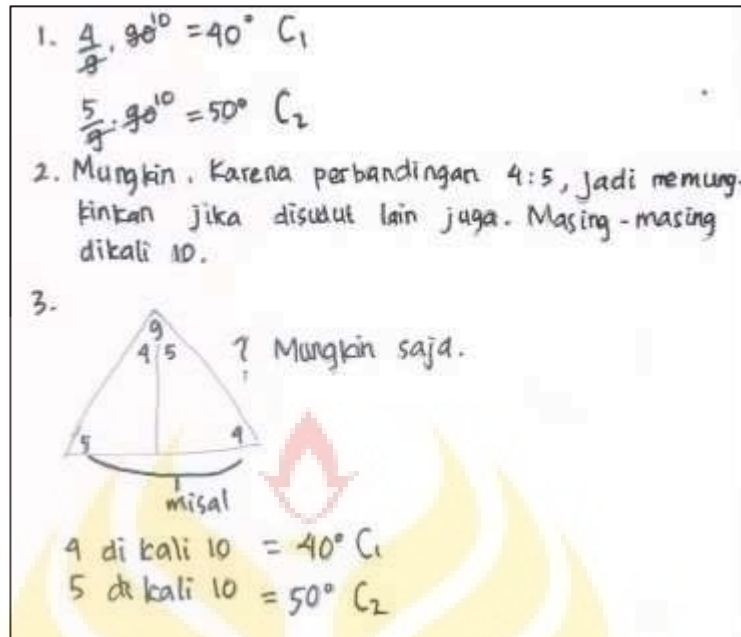 1. 4/9 . 90 10 = 40° C1
5/9 . 90 10 = 50° C2
2. Mungkin. Karena perbandingan 4:5, jadi memung-
kinkan jika disudut lain juga. Masing-masing
dikali 10.
3.
9
4 5 ? Mungkin saja.
5 4
misal
4 di kali 10 = 40° C1
5 di kali 10 = 50° C2